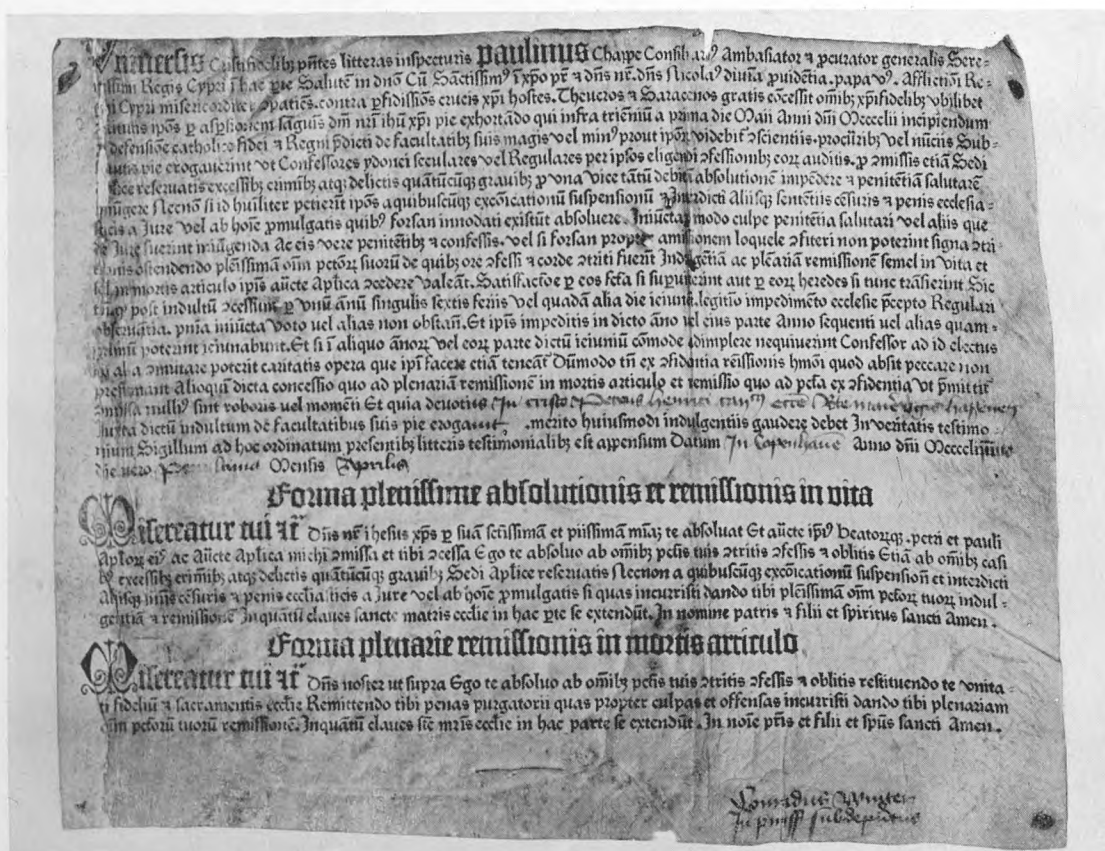 Uniuersis Cristifidelibꝫ pñtes litteras inspecturis Paulinus Chappe Consiliariꝰ Ambasiator ⁊ ꝓcurator generalis Sere-
issimi Regis Cypri ī hac ꝑte Salutē in dnō Cū Sāctissimꝰ ī xpo pr̄ ⁊ dñs nr̄. dñs Nicolaꝰ diuīa ꝓuidētia. papa vꝰ. Afflictiōi Re-
gni Cypri misericorditer ꝯpatiēs. contra ꝑfidissiōs crucis xp̄i hostes. Theucros ⁊ Saracenos gratis cōcessit om̄ibꝫ xp̄ifidelibꝫ vbilibet
ipōs ꝑ aspersionem sāguīs dm̄ nr̄i ihū xp̄i pie exhortādo qui infra triēniū a prima die Maii Anni dm̄ Mcccclii incipiendum
defensiōe catholice fidei ⁊ Regni p̄dicti de facultatibꝫ suis magis vel minꝰ prout ipōꝝ videbit᷑ ꝯscientiis. ꝓcūribꝫ vel nūciis Sub-
pie erogauerint vt Confessores ydonei seculares vel Regulares per ipsos eligendi ꝯfessionibꝫ eoꝝ auditis. ꝓ ꝯmissis etiā Sedi
reseruatis excessibꝫ crimībꝫ atqꝫ delictis quātūcūqꝫ grauibꝫ ꝓ vna vice tātū debitā absolutionē impēdere ⁊ penitētiā salutarē
iniūgere Necnō si id huīliter petierūt ipōs a quibuscūqꝫ excōicationū suspensionū ⁊ Interdicti Aliisqꝫ sentētiis cēsuris ⁊ penis ecclesia-
sticis a Jure vel ab hoīe ꝓmulgatis quibꝰ forsan innodati existūt absoluere. Iniūcta modo culpe penitētia salutari vel aliis que
de Jure fuerint iniūgenda Ac eis vere penitētibꝫ ⁊ confessis. vel si forsan propter amissionem loquele ꝯfiteri non poterint signa ꝯtri-
tionis ostendendo plēissimā oīm pctōꝝ suoꝝ de quibꝫ ore ꝯfessi ⁊ corde ꝯtriti fuerūt Indulgētiā ac plenariā remissionē semel in vita et
sel in mortis articulo ipīs aūcte Aplica ꝯcedere valeāt. Satisfactōe ꝑ eos fc̄ta si suꝑuixerint aut ꝑ eoꝝ heredes si tunc trāsierint Sic
tn̄ qꝫ post indultū ꝯcessum ꝑ vnū annū singulis sextis feriis vel quadā alia die ieiunēt. legitīo impedimēto ecclesie p̄cepto Regulari
obseruātia. pnīa iniūcta voto uel alias non obstan̄. Et ipīs impeditis in dicto āno uel eius parte Anno sequenti uel alias quam-
primū poterint ieiunabunt. Et si ī aliquo ānoꝝ vel eoꝝ parte dictū ieiuniū cōmode adimplere nequiuerint Confessor ad id electus
in alia ꝯmutare poterit caritatis opera que ipī facere etiā teneāt᷑ Dūmodo tn̄ ex ꝯfidentia rēissionis hm̄oi quod absit peccare non
presumant Alioqui dicta concessio quo ad plenariam remissionē in mortis articulo et remissio quo ad pctā ex ꝯfidentia vt p̄mittit᷑
ꝯmissa nulliꝰ sint roboris uel momēti Et quia deuotus In cristo Petrus
Iuxta dictū indultum de facultatibus suis pie erogauit . merito huiusmodi indulgentiis gaudere debet In veritatis testimo-
nium Sigillum ad hoc ordinatum presentibꝫ litteris testimonialibꝫ est appensum Datum In Copenhauē Anno dm̄
die uero Mensis Aprilis
Forma plenissime absolutionis et remissionis in vita
Misereatur tui ⁊c̄ Dn̄s nr̄ ihesus xp̄s ꝑ suā sc̄tissimā et piissimā mīaꝫ te absoluat Et aūcte ipīꝰ Beatorūqꝫ. petri et pauli
Aploꝝ eiꝰ ac Aūcte Aplica michi ꝯmissa et tibi ꝯcessa Ego te absoluo ab om̄ibꝫ pctīs tuis ꝯtritis ꝯfessis ⁊ oblitis Etiā ab om̄ibꝫ casi
bꝫ excessibꝫ crimībꝫ atqꝫ delictis quātūcūqꝫ grauibꝫ Sedi Aplice reseruatis Necnon a quibuscūqꝫ excōicationū suspensiōn et interdicti
Aliisqꝫ sniīs cēsuris ⁊ penis eccliasticis a Jure vel ab hoīe ꝓmulgatis si quas incurristi dando tibi plēissimā oīm pctoꝝ tuoꝝ indul-
gētiā ⁊ remissionē Inquātū claues sancte matris ecclie in hac ꝑte se extendūt. In nomine patris ⁊ filii et spiritus sancti Amen.
Forma plenarie remissionis in mortis articulo
Misereatur tui ⁊c̄ Dn̄s noster ut supra Ego te absoluo ab om̄ibꝫ pctīs tuis ꝯtritis ꝯfessis ⁊ oblitis restituendo te vnita-
ti fideliū ⁊ sacramentis ecclie Remittendo tibi penas purgatorii quas propter culpas et offensas incurristi dando tibi plenariam
oīm pctorū tuorū remissionē. Inquātū claues sc̄e mr̄is ecclie in hac parte se extendūt. In noīe pr̄is et filii et spūs sancti Amen.
Conradus Winter
subdeputatus